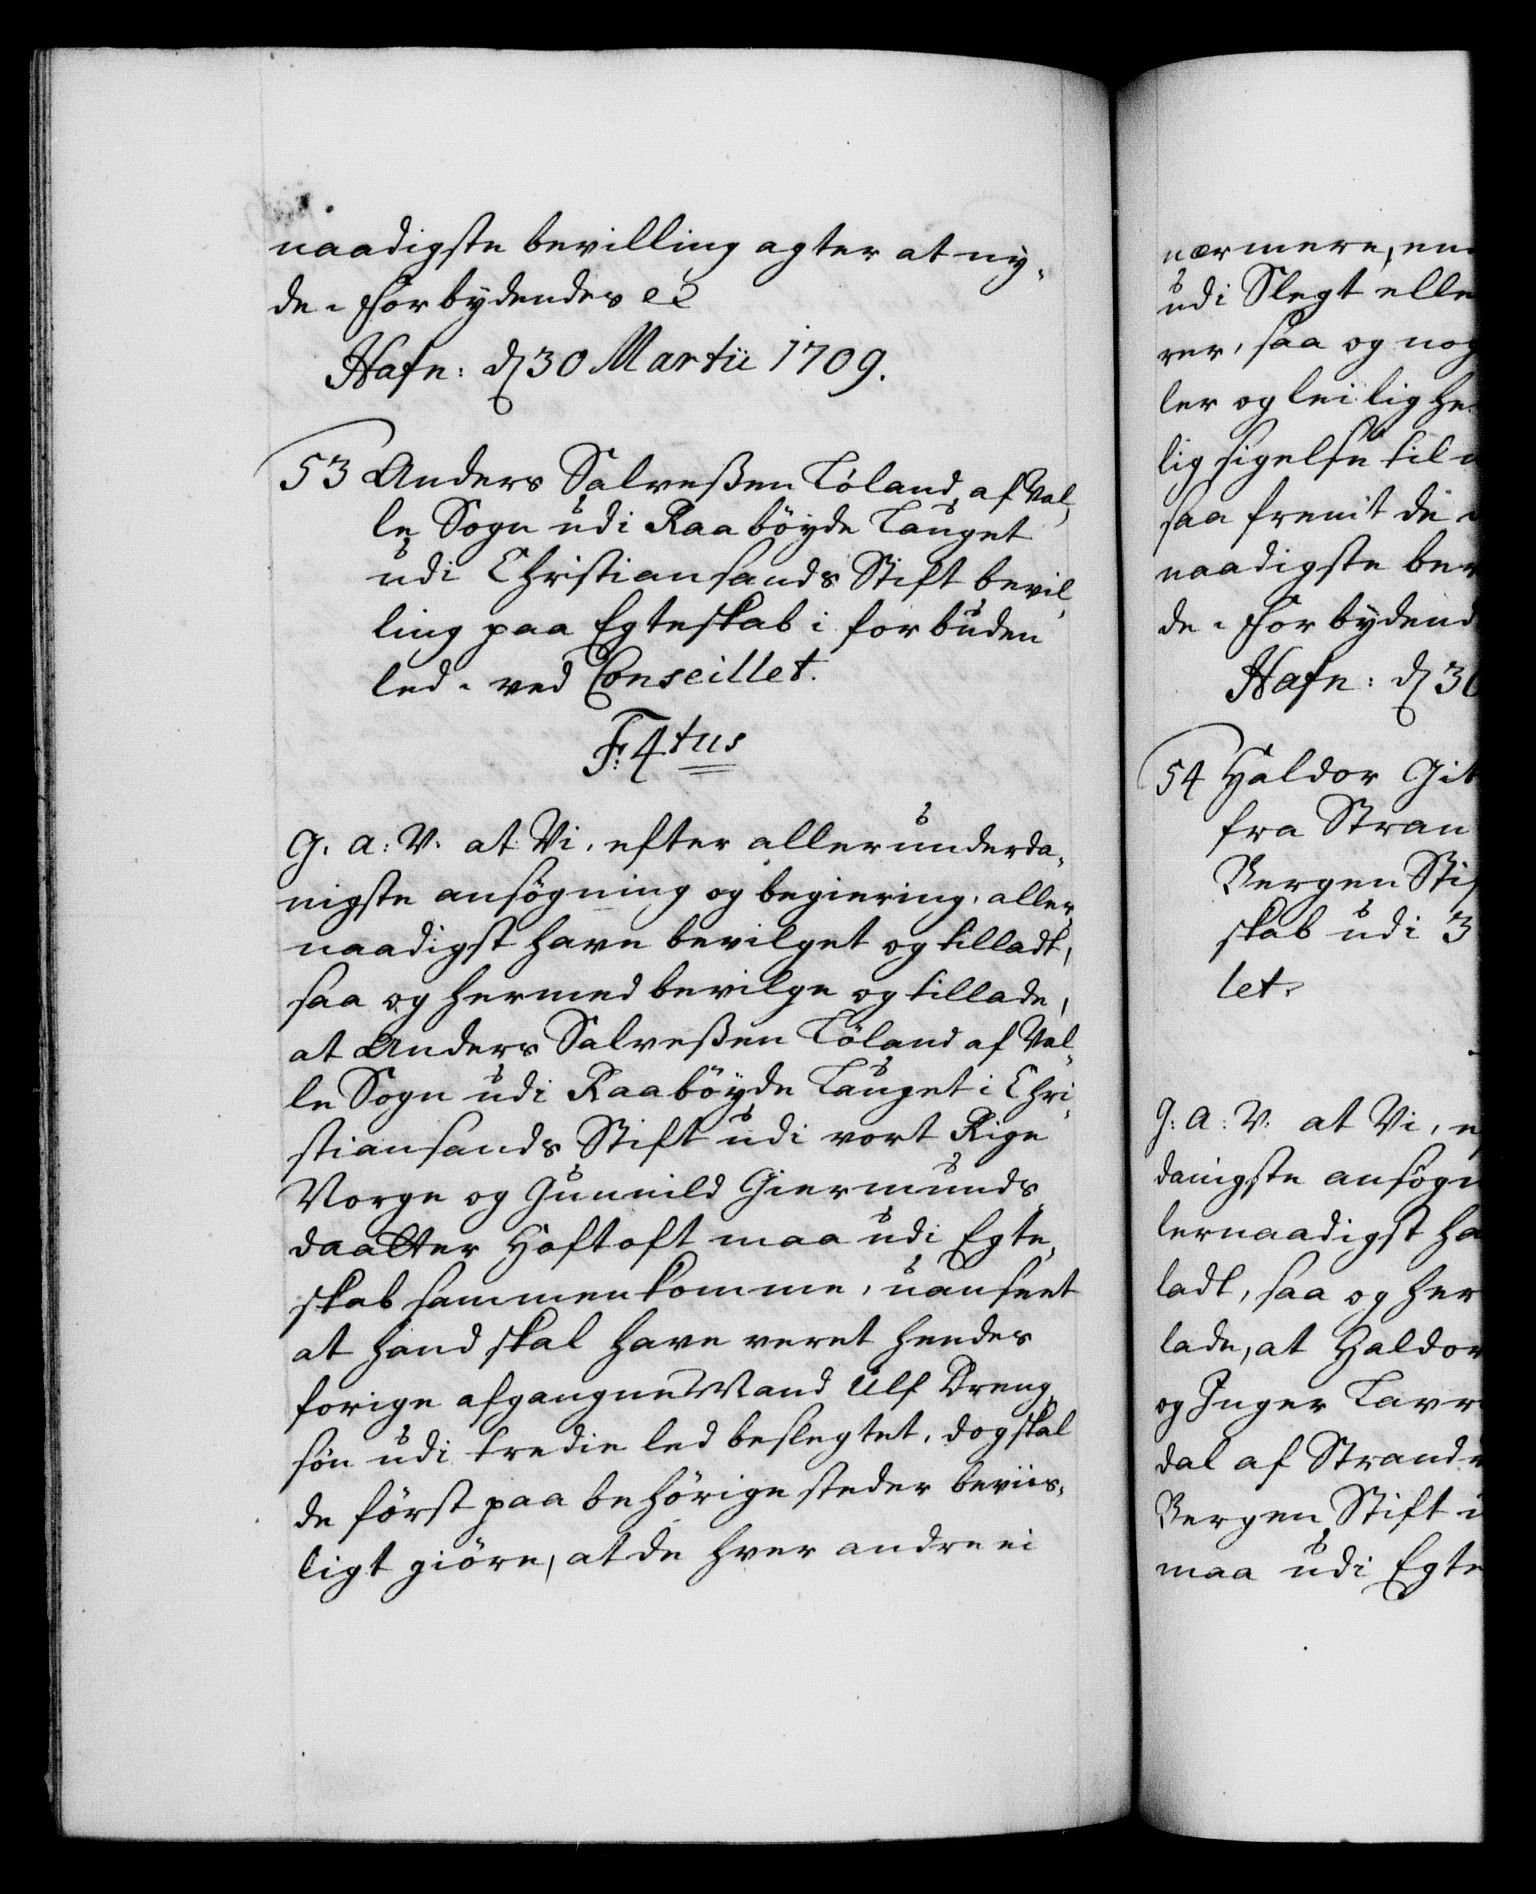 naadigste bevilling agter at ny-
de. Forbydendes &c
Hafn: d 30 Martii 1709.
53 Anders Salveßen Töland, af Val-
le Sogn udi Raaböyde Lauget
udi Christiansands Stift bevil-
ling paa Egteskab i forbuden
led. ved Conseillet.
F: 4tus
G. A: V. at Vi, efter allerunderda-
nigste ansögning og begiering, aller-
naadigst have bevilget og tilladt,
saa og hermed bevilge og tillade,
at Anders Salveßen Töland af Val-
le Sogn udi Raaböyde Lauget i Chri-
stiansands Stift udi vort Rige
Norge og Gunnild Giermunds
daatter Hoftoft maa udi Egte-
skab sammenkomme, uanseet
at hand skal have veret hendes
forige afgangne Mand Ulf Dreng-
sön udi tredie led beslegtet, dog skal
de först paa behörige steder beviis-
ligt giöre, at de hver andre ei
nærmere, en
udi Slegt elle
rer, saa og nog
ler og leilighe
ligsigelse til
saa fremt de
naadigste bev
de. Forbydend
Hafn: d 30
54 Haldor Git
fra Stran
Bergen Stif
skab udi 3
let.
G: A: V. at Vi, ef
danigste ansögn
lernaadigst ha
ladt, saa og her
lade, at Haldor
og Inger Lavr
dal af Strand
Bergen Stift i
maa udi Egte